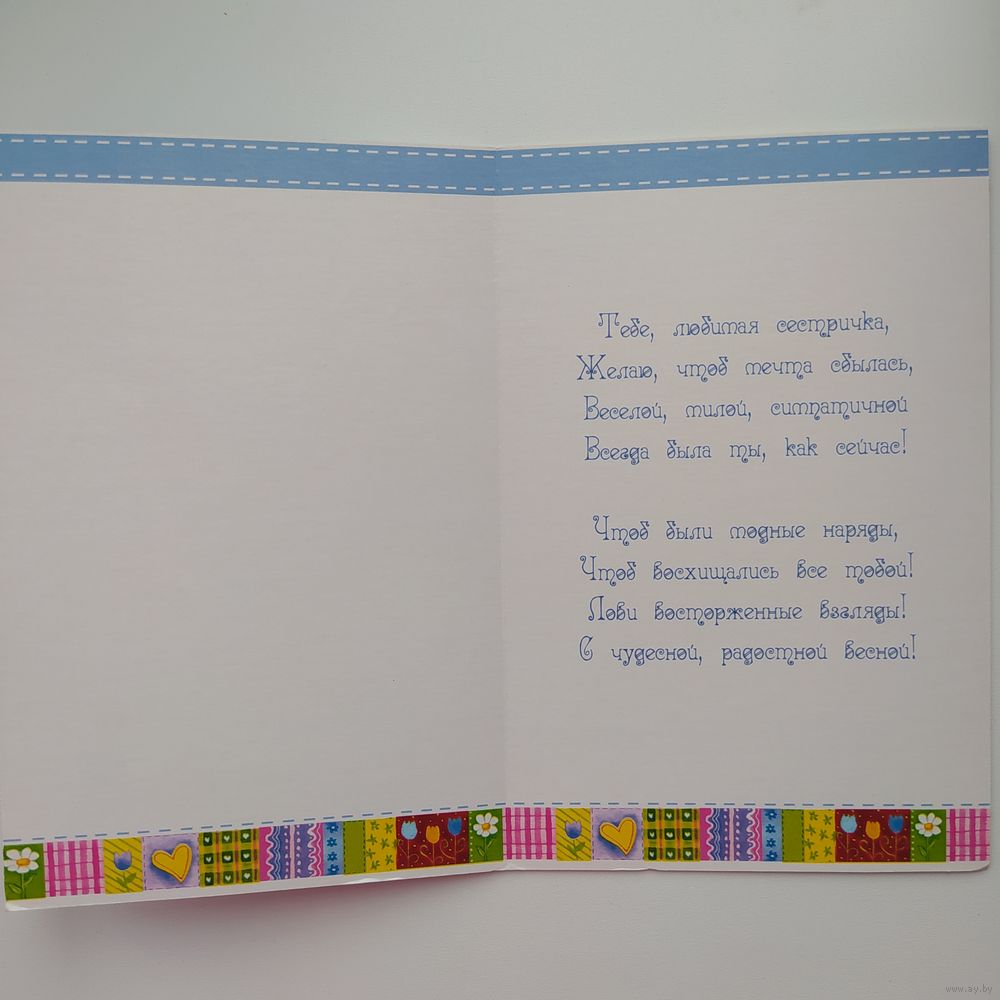 Тебе, любимая сестричка,
Желаю, чтоб мечта сбылась,
Веселой, милой, симпатичной
Всегда была ты, как сейчас!
Чтоб были модные наряды,
Чтоб восхищались все тобой!
Лови восторженные взгляды!
С чудесной, радостной весной!
www.ay.by